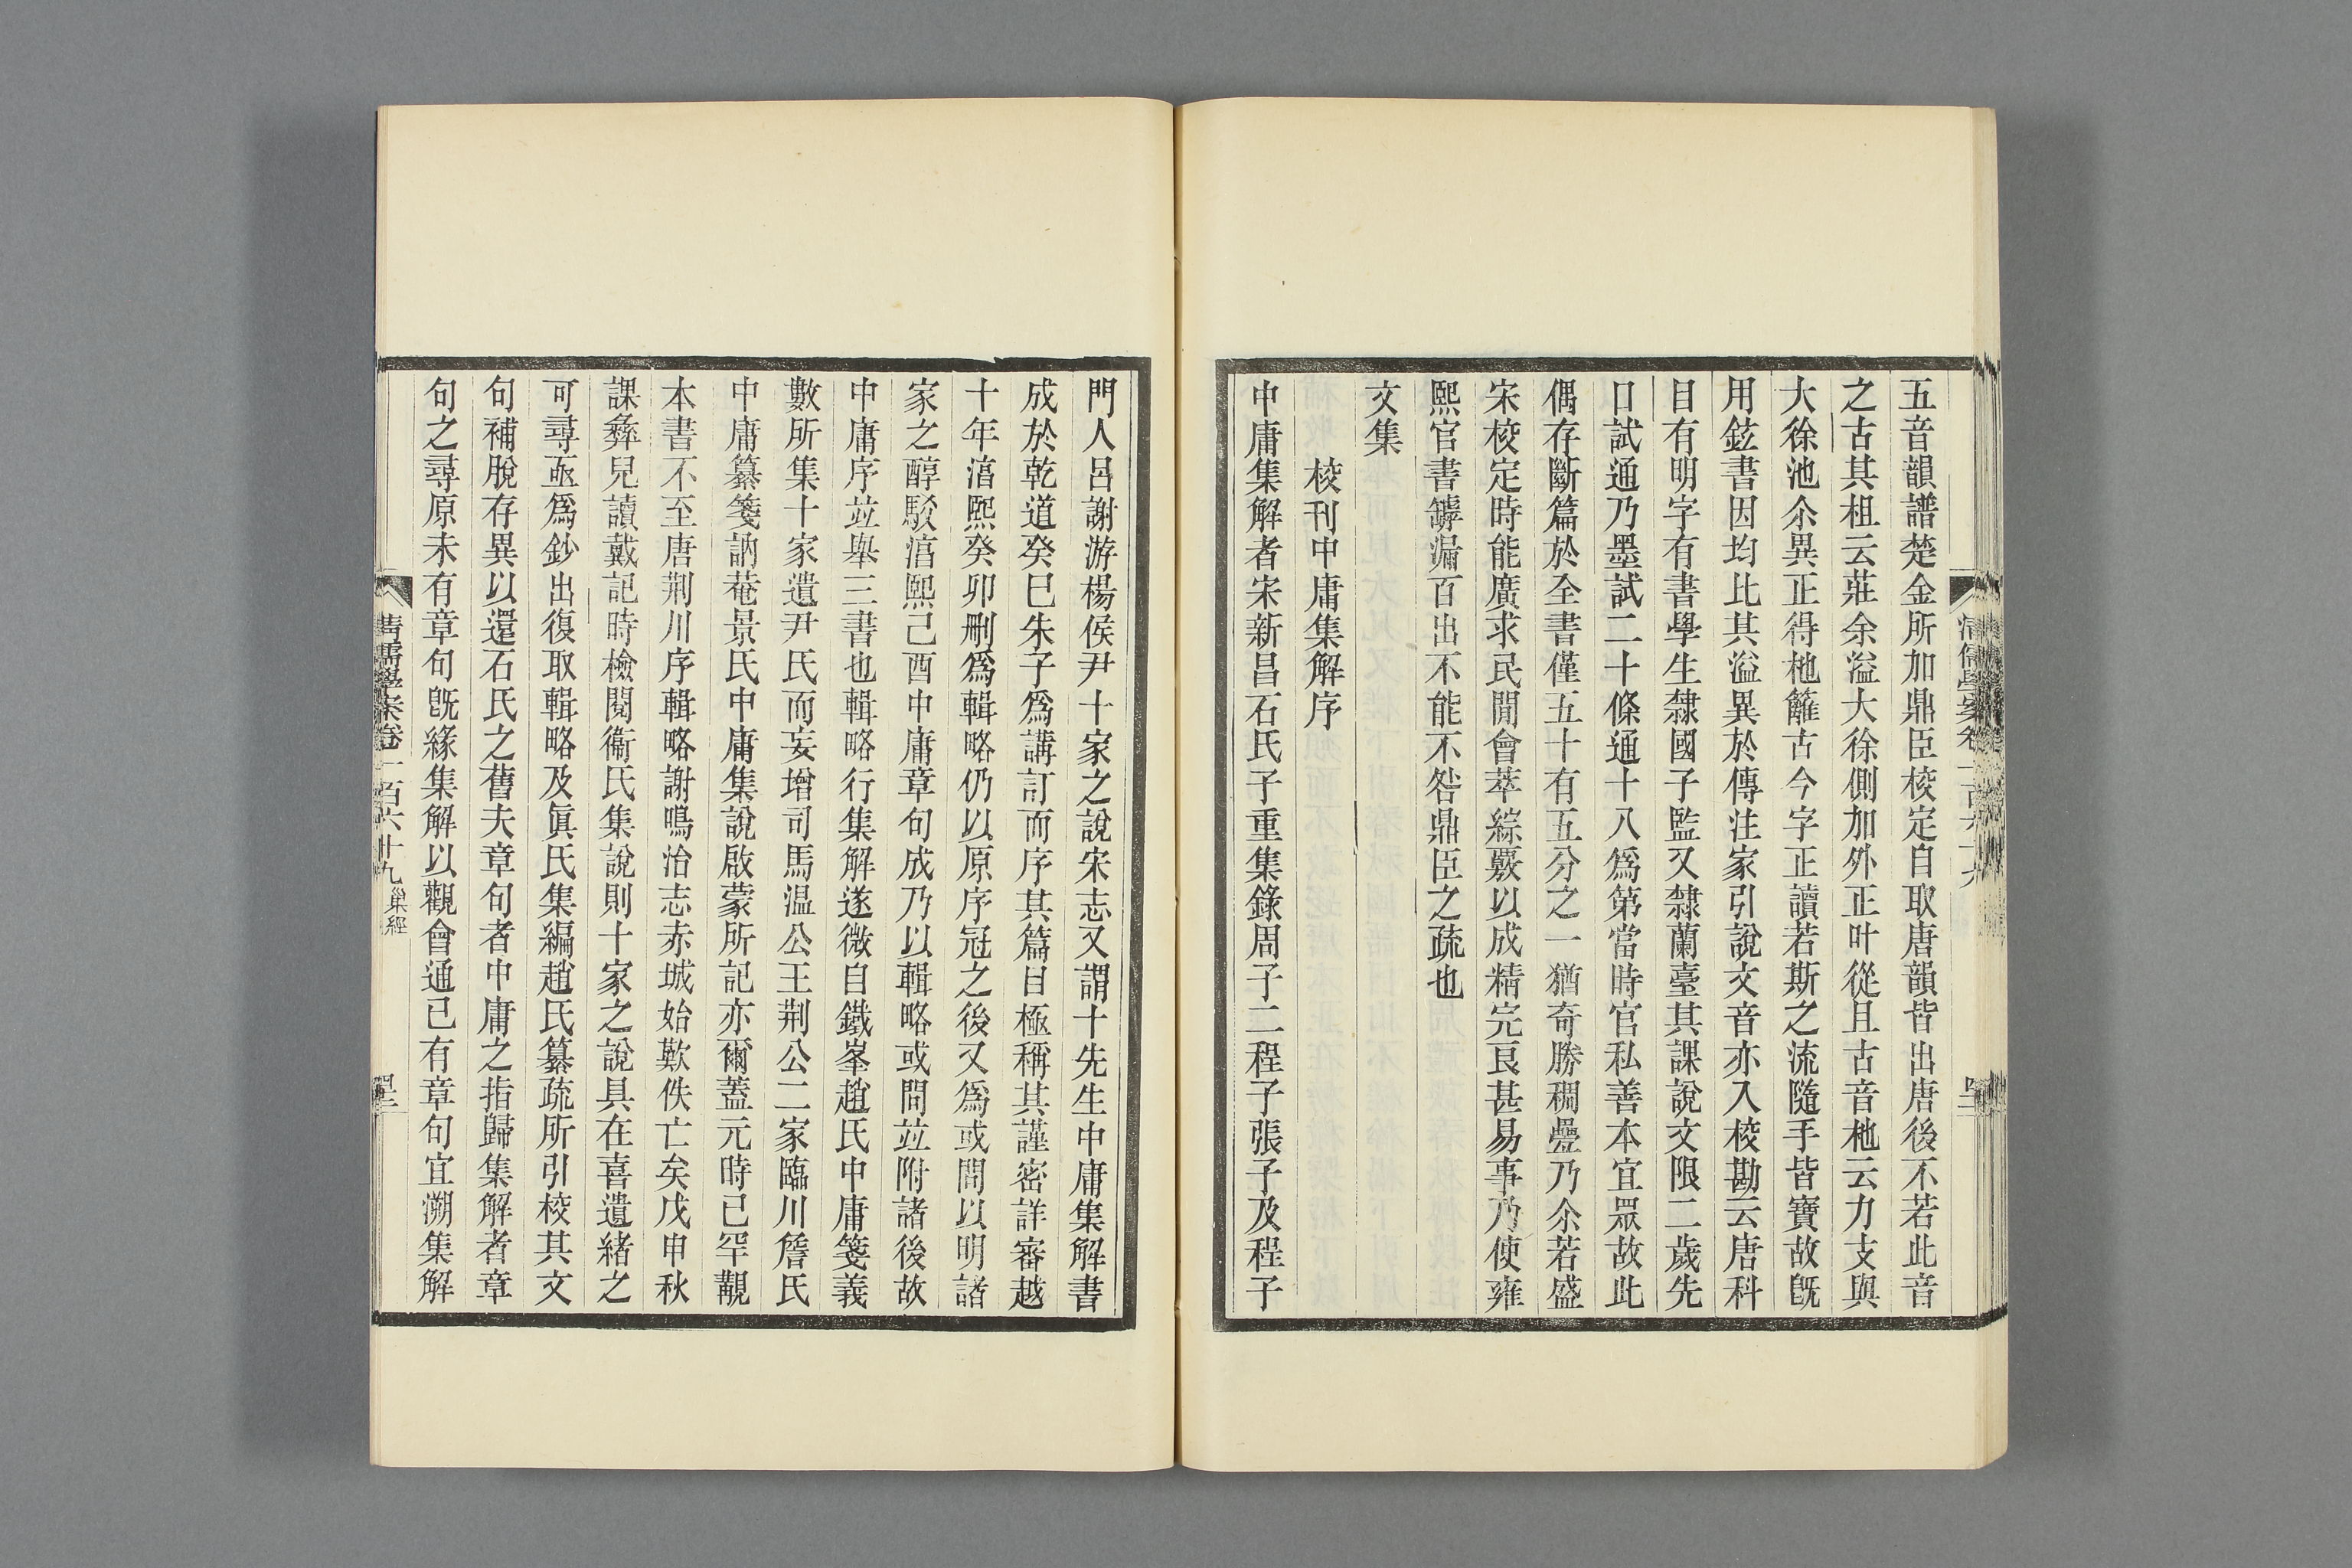 五音韻譜楚金所加鼎臣校定自取唐韻皆出唐後不若此音
之古其柤云莊余溢大徐側加外正叶從且古音杝云力支與
大徐池尒異正得杝籬古今字正讀若斯之流隨手皆寶故旣
用鉉書因均比其溢異於傳注家引說文音亦入校勘云唐科
目有明字有書學生隸國子監又隸蘭臺其課說文限二歲先
口試通乃墨試二十條通十八爲第當時官私善本宜眾故此
偶存斷篇於全書僅五十有五分之一猶奇勝稠疊乃尒若盛
宋校定時能廣求民閒會萃綜覈以成精完艮甚易事乃使雍
熙官書罅漏百出不能不咎鼎臣之疏也
文集
校刊中庸集解序
中庸集解者宋新昌石氏子重集錄周子二程子張子及程子
門人呂謝游楊侯尹十家之說宋志又謂十先生中庸集解書
成於乾道癸巳朱子爲講訂而序其篇目極稱其謹密詳審越
十年湻熙癸卯刪爲輯略仍以原序冠之後又爲或問以明諸
家之醇駁湻熙己酉中庸章句成乃以輯略或問並附諸後故
中庸序並舉三書也輯略行集解遂微自鐵峯趙氏中庸箋義
數所集十家遺尹氏而妄增司馬温公王荆公二家臨川詹氏
中庸纂箋訥菴景氏中庸集說啟蒙所記亦爾蓋元時已罕覯
本書不至唐荆川序輯略謝鳴治志赤城始歎佚亡矣戊申秋
課彝兒讀戴記時檢閱衞氏集說則十家之說具在喜遺緒之
可尋亟爲鈔出復取輯略及眞氏集編趙氏纂疏所引校其文
句補脫存異以還石氏之舊夫章句者中庸之指歸集解者章
句之尋原未有章句旣緣集解以觀會通已有章句宜溯集解
清儒學案卷一百六十九 巢經